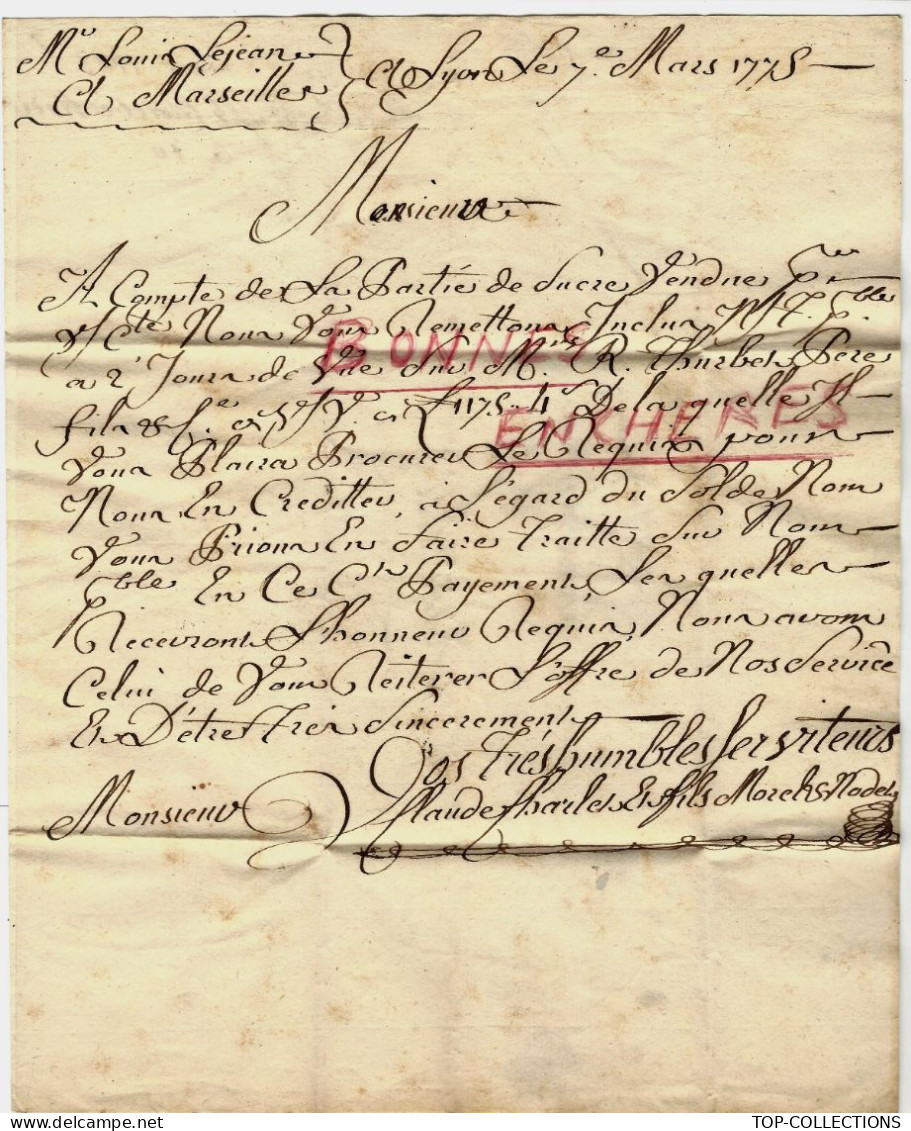 Mr Louis Lejean
A Marseille
A Lyon Le 7e. Mars 1775
Monsieur
A Compte de La Partie de Sucre Vendue Pr
V/ Cte Nous Vous Remettons Inclus
à 2 Jours de Vüe sur Mrs R. Thurbet Pere
fils & Ce. £ 1175..4s De la quelle Il
Vous Plaira Procurer Le Requis pour
Nous En Crediter, à Légard du Solde Nous
Vous Prions En faire Traitte sur Nous
Pble En Ce Ct Payement, Les quelles
Recevront L'honneur Requis, Nous avons
Celui de Vous Reiterer L'offre de Nos Service
Et D'étre Tres Sincerement
Vos trés humbles Serviteurs
Monsieur
Claude Charles Et fils Morel & Rodet
BONNES
ENCHERES
TOP-COLLECTIONS